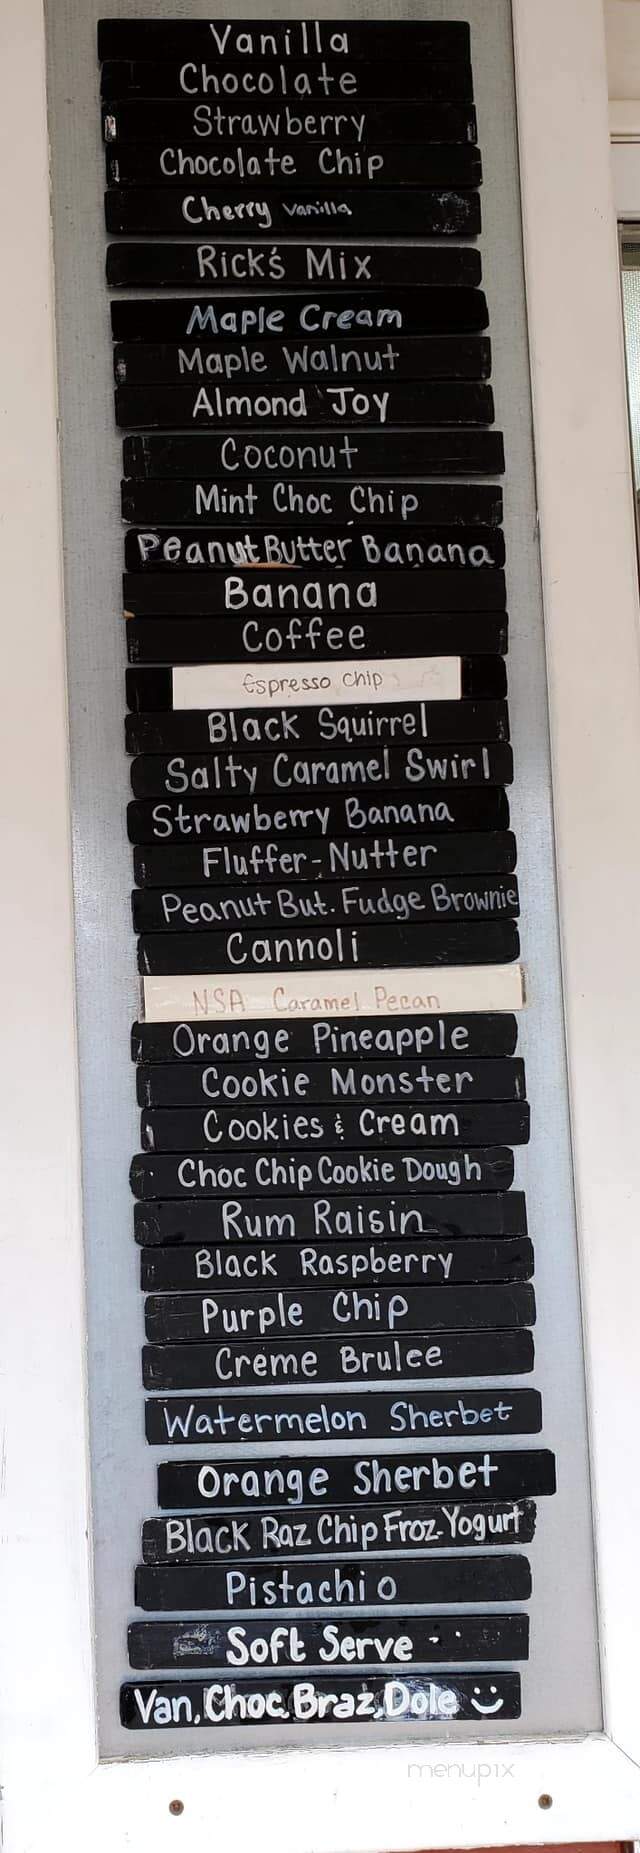 Vanilla
Chocolate
Strawberry
Chocolate Chip
Cherry Vanilla
Rick's Mix
Maple Cream
Maple Walnut
Almond Joy
Coconut
Mint Choc Chip
Peanut Butter Banana
Banana
Coffee
Espresso Chip
Black Squirrel
Salty Caramel Swirl
Strawberry Banana
Fluffer-Nutter
Peanut But. Fudge Brownie
Cannoli
NSA Caramel Pecan
Orange Pineapple
Cookie Monster
Cookies & Cream
Choc Chip Cookie Dough
Rum Raisin
Black Raspberry
Purple Chip
Creme Brulee
Watermelon Sherbet
Orange Sherbet
Black Raz Chip Froz. Yogurt
Pistachio
Soft Serve
Van, Choc, Braz, Dole
menupix